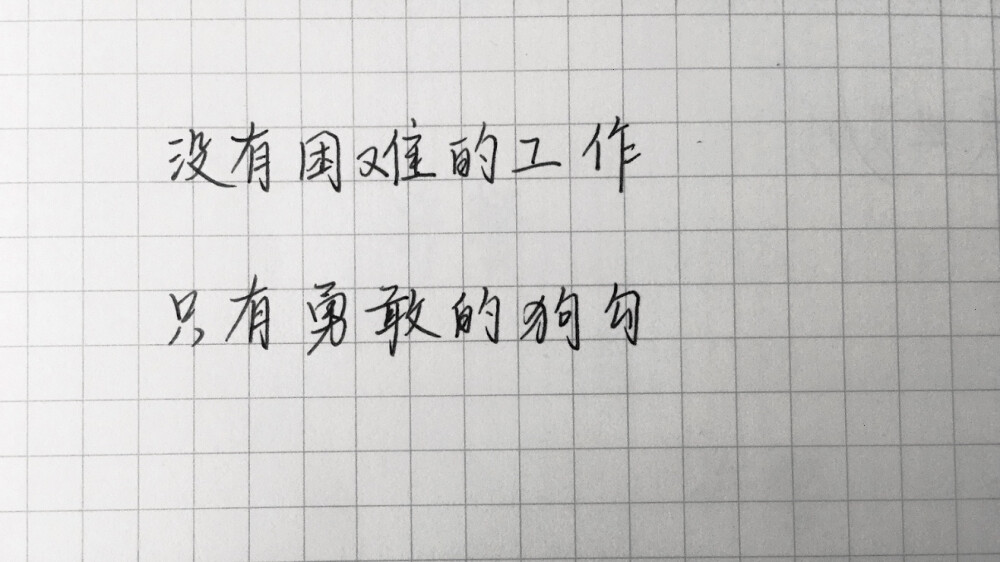 没有困难的工作
只有勇敢的狗勾